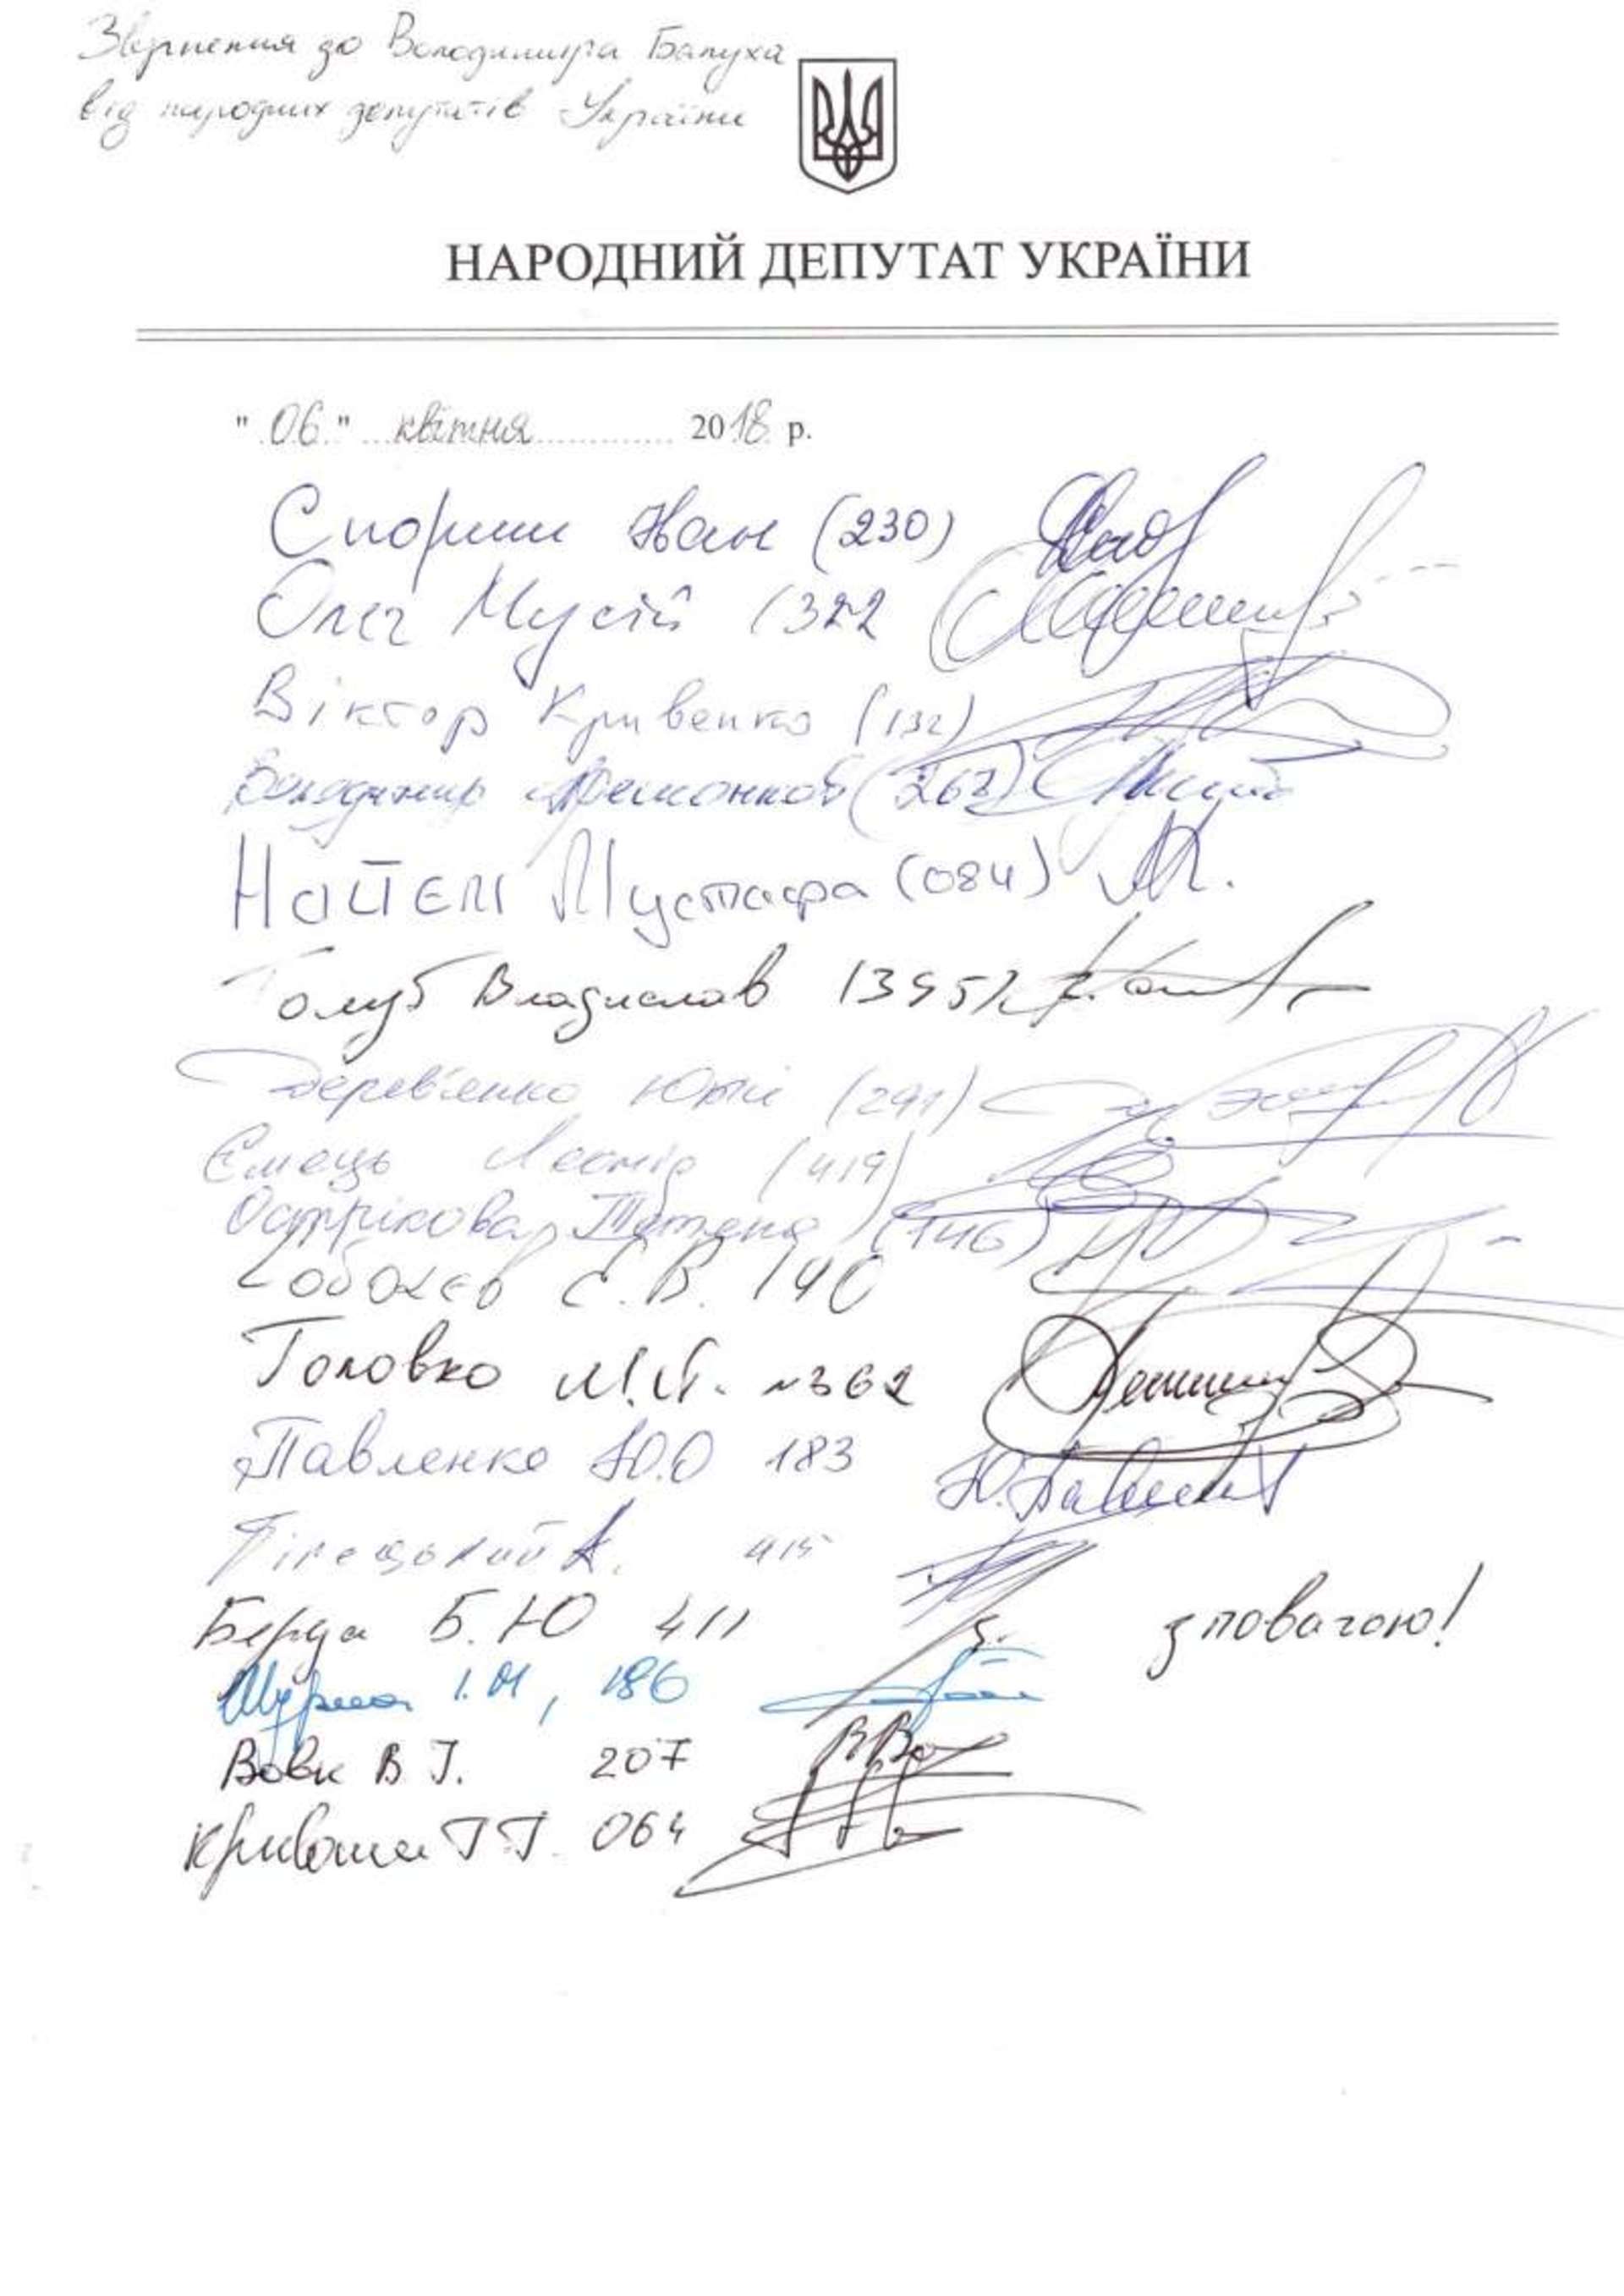 Звернення до Володимира Балуха
від народних депутатів України
НАРОДНИЙ ДЕПУТАТ УКРАЇНИ
"06" квітня 2018 р.
Спориш Іван (230)
Олег Мусій (322
Віктор Кривенко (132)
Володимир (263)
Найєм Мустафа (084)
Голуб Владислав (395)
Дерев'янко Юрій (291)
Ємець Леонід (419)
Острікова Тетяна (146)
Соболєв Є.В. 140
Головко М.Й. №362
Павленко Ю.О 183
Білецький А. 415
Берда Б.Ю 411
з повагою!
Мурма І.М, 186
Вовк В І. 207
064